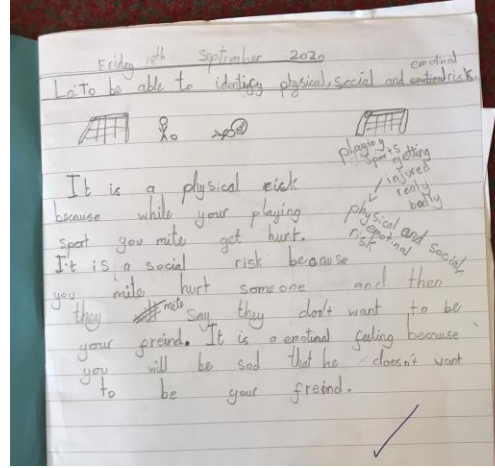 Friday 18th September 2020
emotinal
L.o: To be able to identify physical, social and risk.
playing
sports getting
injured
realy
badly
physical and social,
emotinal
risk
It is a physical risk
because while your playing
sport you mite get hurt.
It is a social risk because
you mite hurt someone and then
they mite say they don't want to be
your freind. It is a emotinal feeling because
you will be sad that he doesn't want
to be your freind.